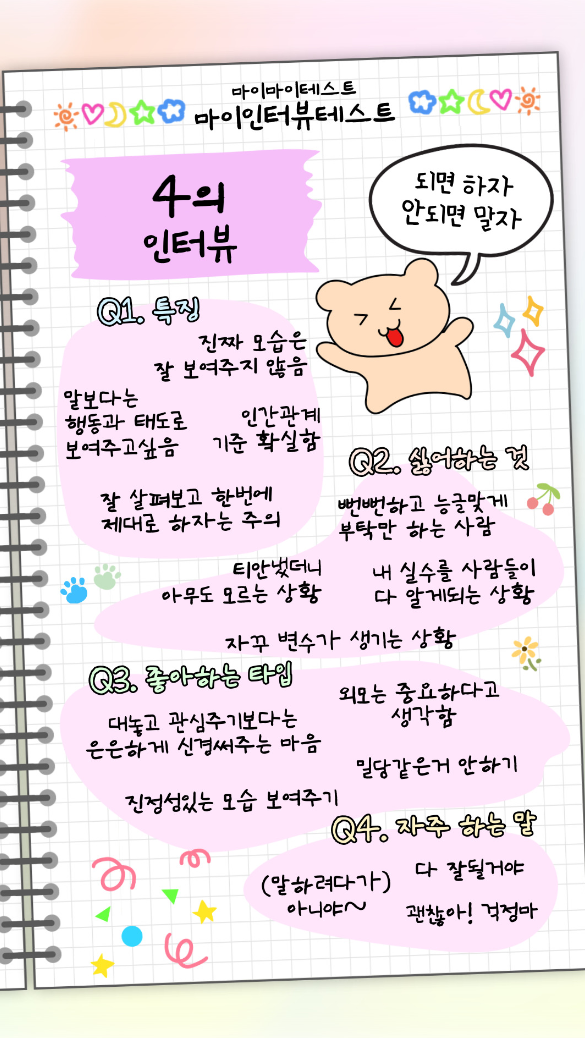 마이마이테스트
마이인터뷰테스트
4의
인터뷰
되면 하자
안되면 말자
Q1. 특징
진짜 모습은
잘 보여주지 않음
말보다는
행동과 태도로
보여주고싶음
인간관계
기준 확실함
잘 살펴보고 한번에
제대로 하자는 주의
Q2. 싫어하는 것
뻔뻔하고 능글맞게
부탁만 하는 사람
티안냈더니
아무도 모르는 상황
내 실수를 사람들이
다 알게되는 상황
자꾸 변수가 생기는 상황
Q3. 좋아하는 타입
외모는 중요하다고
생각함
대놓고 관심주기보다는
은은하게 신경써주는 마음
밀당같은거 안하기
진정성있는 모습 보여주기
Q4. 자주 하는 말
(말하려다가)
아니야~
다 잘될거야
괜찮아! 걱정마